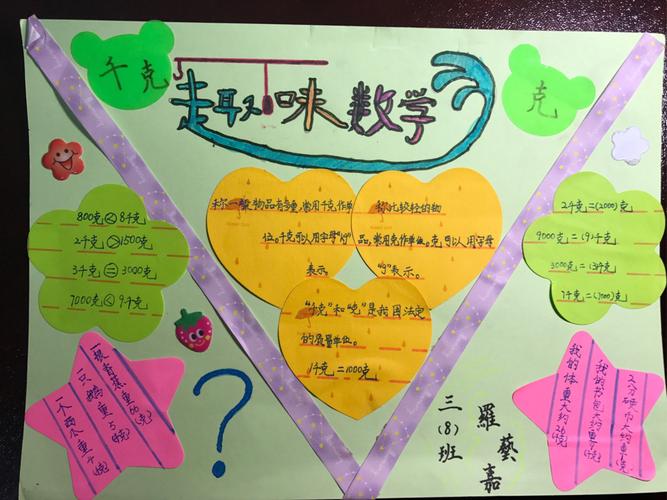 千克
趣味数学
克
800克<8千克
2千克>1500克
3千克=3000克
7000克<9千克
称一般物品有多重,常用千克作单
位。千克可以用字母"kg"
表示。
称比较轻的物
品,常用克作单位。克可以用字母
"g"表示。
"千克"和"克"是我国法定
的质量单位。
1千克=1000克
2千克=(2000)克
9000克=(9)千克
3000克=(3)千克
7千克=(7000)克
一根香蕉重66(克)
一只鹅重5(千克)
一个西瓜重4(千克)
?
三(8)班
羅藝嘉
2分硬币大约重1克
我的书包大约重4千克
我的体重大约26千克